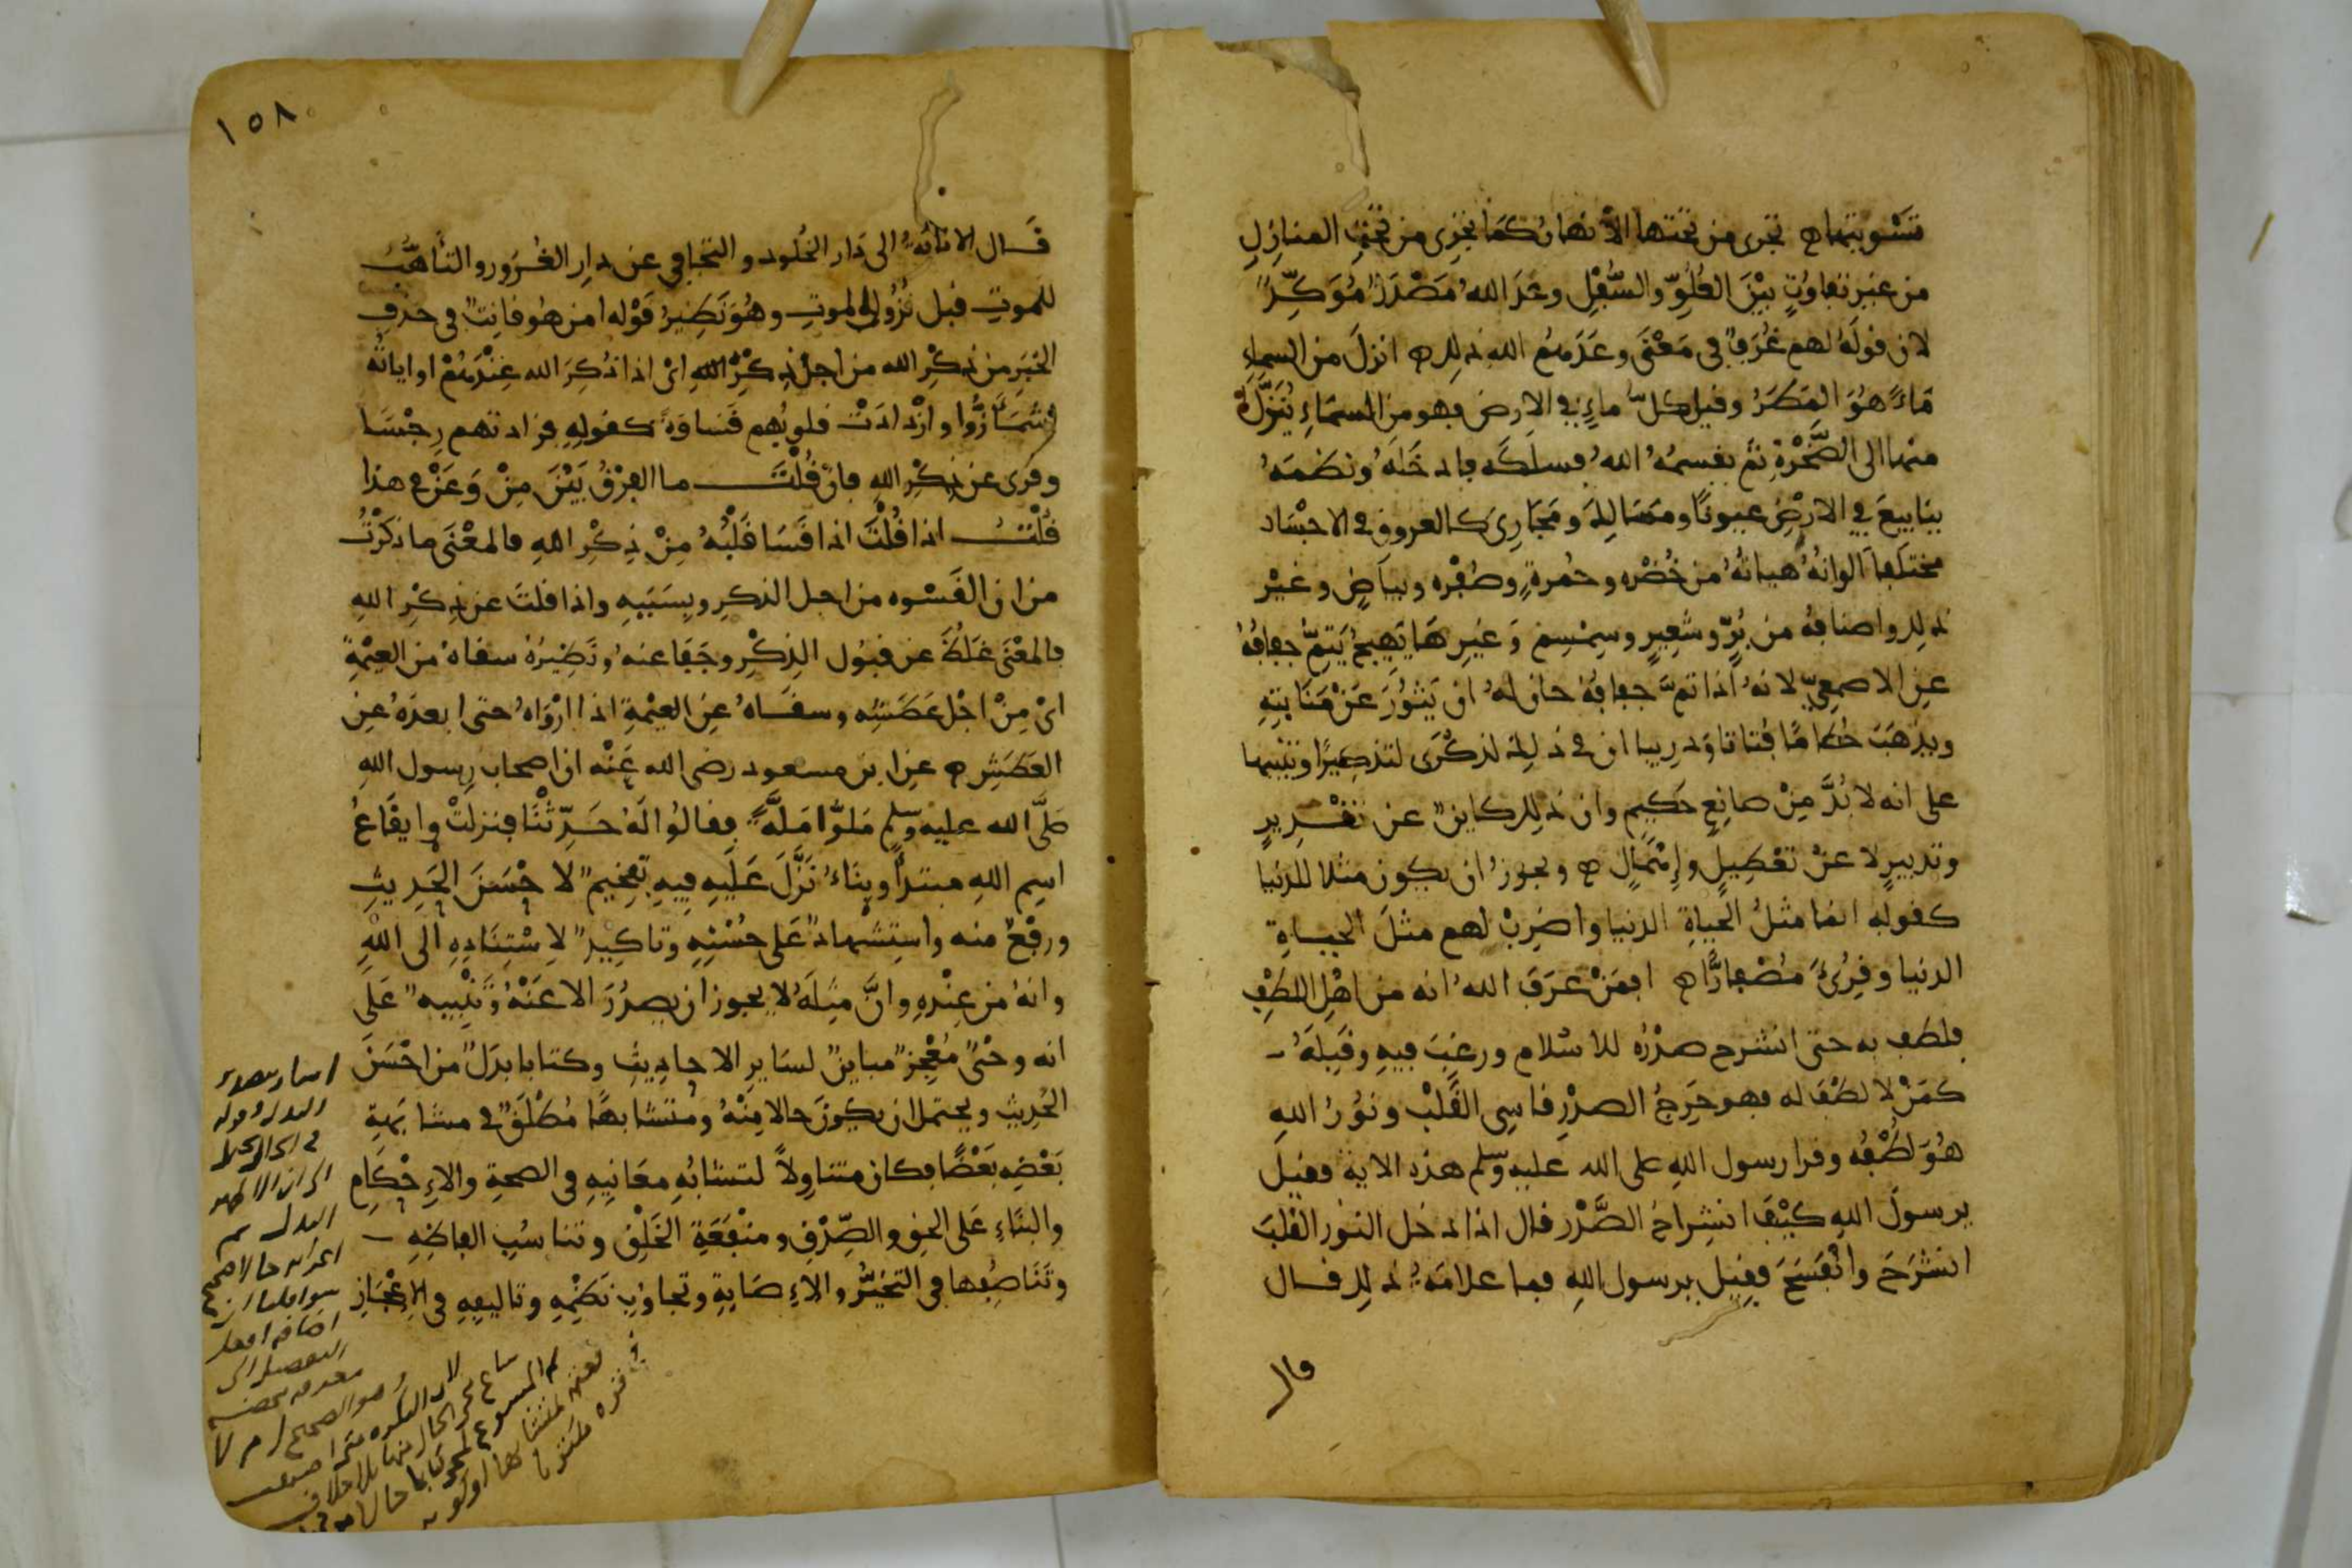 تَسْويتها ه تجرى من تحتها الأنهار كَمَا تجْرِى من تحْتِ المنازِلِ
من غير تفاوُتٍ بيْنَ العُلُوِّ والسُّفْلِ وعْدَ اللهُ مَصْدَرٌ مُوَكِّدٌ
لان قولَهُ لهم غُرَفٌ فى مَعْنَى وعَدَهُم الله ذلك ه انزلَ من السماءِ
مَاءً هُوَ المَطَرُ وقيل كلُّ ماءٍ فى الارض فهو من السمَاءِ يُنَزَّلُ
منها الى الصَّخْرةِ ثم يقسمُهُ اللهُ فسلَكَه فادخَلَهُ ونظمَهُ
ينَابيعَ فى الارْضِ عيونًا ومسَالِكَ ومَجَارِىَ كالعروق فى الاجْسَاد
مختلفًا الوانُهُ هياتُهُ من خُضْره وحُمرةٍ وصُفْره وبياضٍ وغيْر
ذلك واصنافُهُ من بُرٍّ وشَعِيرٍ وسِمْسِمٍ وَغيرِهَا يَهِيجُ يَتِمُّ جفافُهُ
عنِ الاصمعىِّ لانهُ اذا تمَّ جفافُهُ حان لهُ ان يَثُورَ عَنْ مَنَابتِهِ
ويذهَبَ حُطامًا فُتاتا ودرينا ان فى ذلك لذكْرَى لتذكِيرًا وتنبيها
على انه لا بُدَّ مِنْ صانِعٍ حَكِيمٍ وان ذلك كاينٌ عن تقْدِيرٍ
وتدبيرٍ لا عنْ تعْطِيلٍ وإِهْمَالٍ ه ويجوزُ ان يكون مثلا للدنيا
كقولهِ انما مثلُ الحيَاةِ الدنيا واضرِبْ لهم مثلَ الحيَاةِ
الدنيا وقُرِئَ مُصْفارًّا ه افمَنْ عرَفَ اللهُ انه من اهْلِ اللطْفِ
فلطف به حتى انشرح صدْرُه للاسْلام ورغِبَ فيهِ وقَبِلَهُ
كمَنْ لا لطْفَ له فهو حَرِجُ الصدْرِ قاسِى القَلْبِ ونُورُ اللهِ
هُوَ لطْفُه وقرا رسول اللهِ صلى الله عليه وسلم هذه الاية فقيلَ
يرسولَ اللهِ كيْفَ انشِراحُ الصَّدْر قال اذا دخل النور القلبَ
انشرَحَ وانْفَسَحَ فقِيل يرسول اللهِ فما علامَةُ ذلك قال
قال
١٥٨
قَال الانابَةُ الى دَار الخُلود والتجافى عن دارِ الغُرُورِ والتأهُّبُ
للموتِ قبل نُزُولِ الموتِ وهُوَ نَظِيرُ قَوْله امن هُو قانِتٌ فى حذفِ
الخبَرِ من ذِكْرِ الله من اجل ذِكْرِ اللهِ اىْ اذا ذُكِرَ الله عِنْدَهُمْ او اياتُه
اشْمَأَزُّوا وازْدادَتْ قلوبُهم قَسَاوَةً كقولِهِ فزادتهم رِجْسًا
وقرى عن ذِكْرِ اللهِ فانْ قُلْتَ ما الفرْقُ بَيْنَ مِنْ وَعَنْ فى هذا
قُلْتُ اذا قُلْتَ اذا قَسَا قَلْبُهُ مِنْ ذِكْرِ اللهِ فالمعْنَى ما ذكَرْتُ
من ان القَسْوه من اجل الذكر وبِسَبَبِهِ واذا قلتَ عن ذِكْرِ اللهِ
فالمعْنَى غلُظَ عن قبُول الذِكْرِ وجَفَا عنهُ ونَظِيرُهُ سقاهُ من العيْمَةِ
اىْ مِنْ اجْل عَطَشِه وسقَاهُ عنِ العيْمةِ اذا ارْوَاهُ حتى ابعدَهُ عنِ
العَطَشِ ه عنِ ابن مسعود رضى الله عَنْه ان اصحاب رسول اللهِ
صلَّى الله عليه وسلم مَلُّوا مَلَّةً فقالُوا لَهُ حَدِّثْنَا فنزلتْ وايقَاعُ
اسمِ اللهِ مبتدأً وبِنَاءُ نَزَّلَ عَليهِ فِيهِ تفخِيمٌ لاحْسَنَ الحَدِيثِ
ورفْعٌ منه واستِشْهادٌ عَلى حُسْنِهِ وتاكِيدٌ لاِسْتِنَادِهِ الى اللهِ
وانهُ من عنْدِهِ وانَّ مثلَهُ لا يجوز ان يصدُرَ الا عَنْهُ وَتَنْبِيهٌ عَلَى
انه وحْىٌ مُعْجِزٌ مباينٌ لسَايرِ الاحادِيثِ وكتابا بدَلٌ من احْسَنَ
الحَدِيثِ ويحتمل ان يكونَ حالا مِنْهُ ومُتَشابهًا مُطْلَقٌ فى مشابَهةِ
بَعْضِهِ بَعْضًا فكان متناوِلاً لتشابُهِ معَانِيهِ فى الصحةِ والاِحْكامِ
والبنَاءِ عَلى الحق والصِّدْقِ ومنْفَعَةِ الخَلْقِ وتناسُبِ الفاظِهِ
وتَنَاصُفِها فى التخيُّرِ والاِصَابةِ وتجاوُبِ نَظْمِهِ وتاليفِهِ فى الاِعْجَازِ